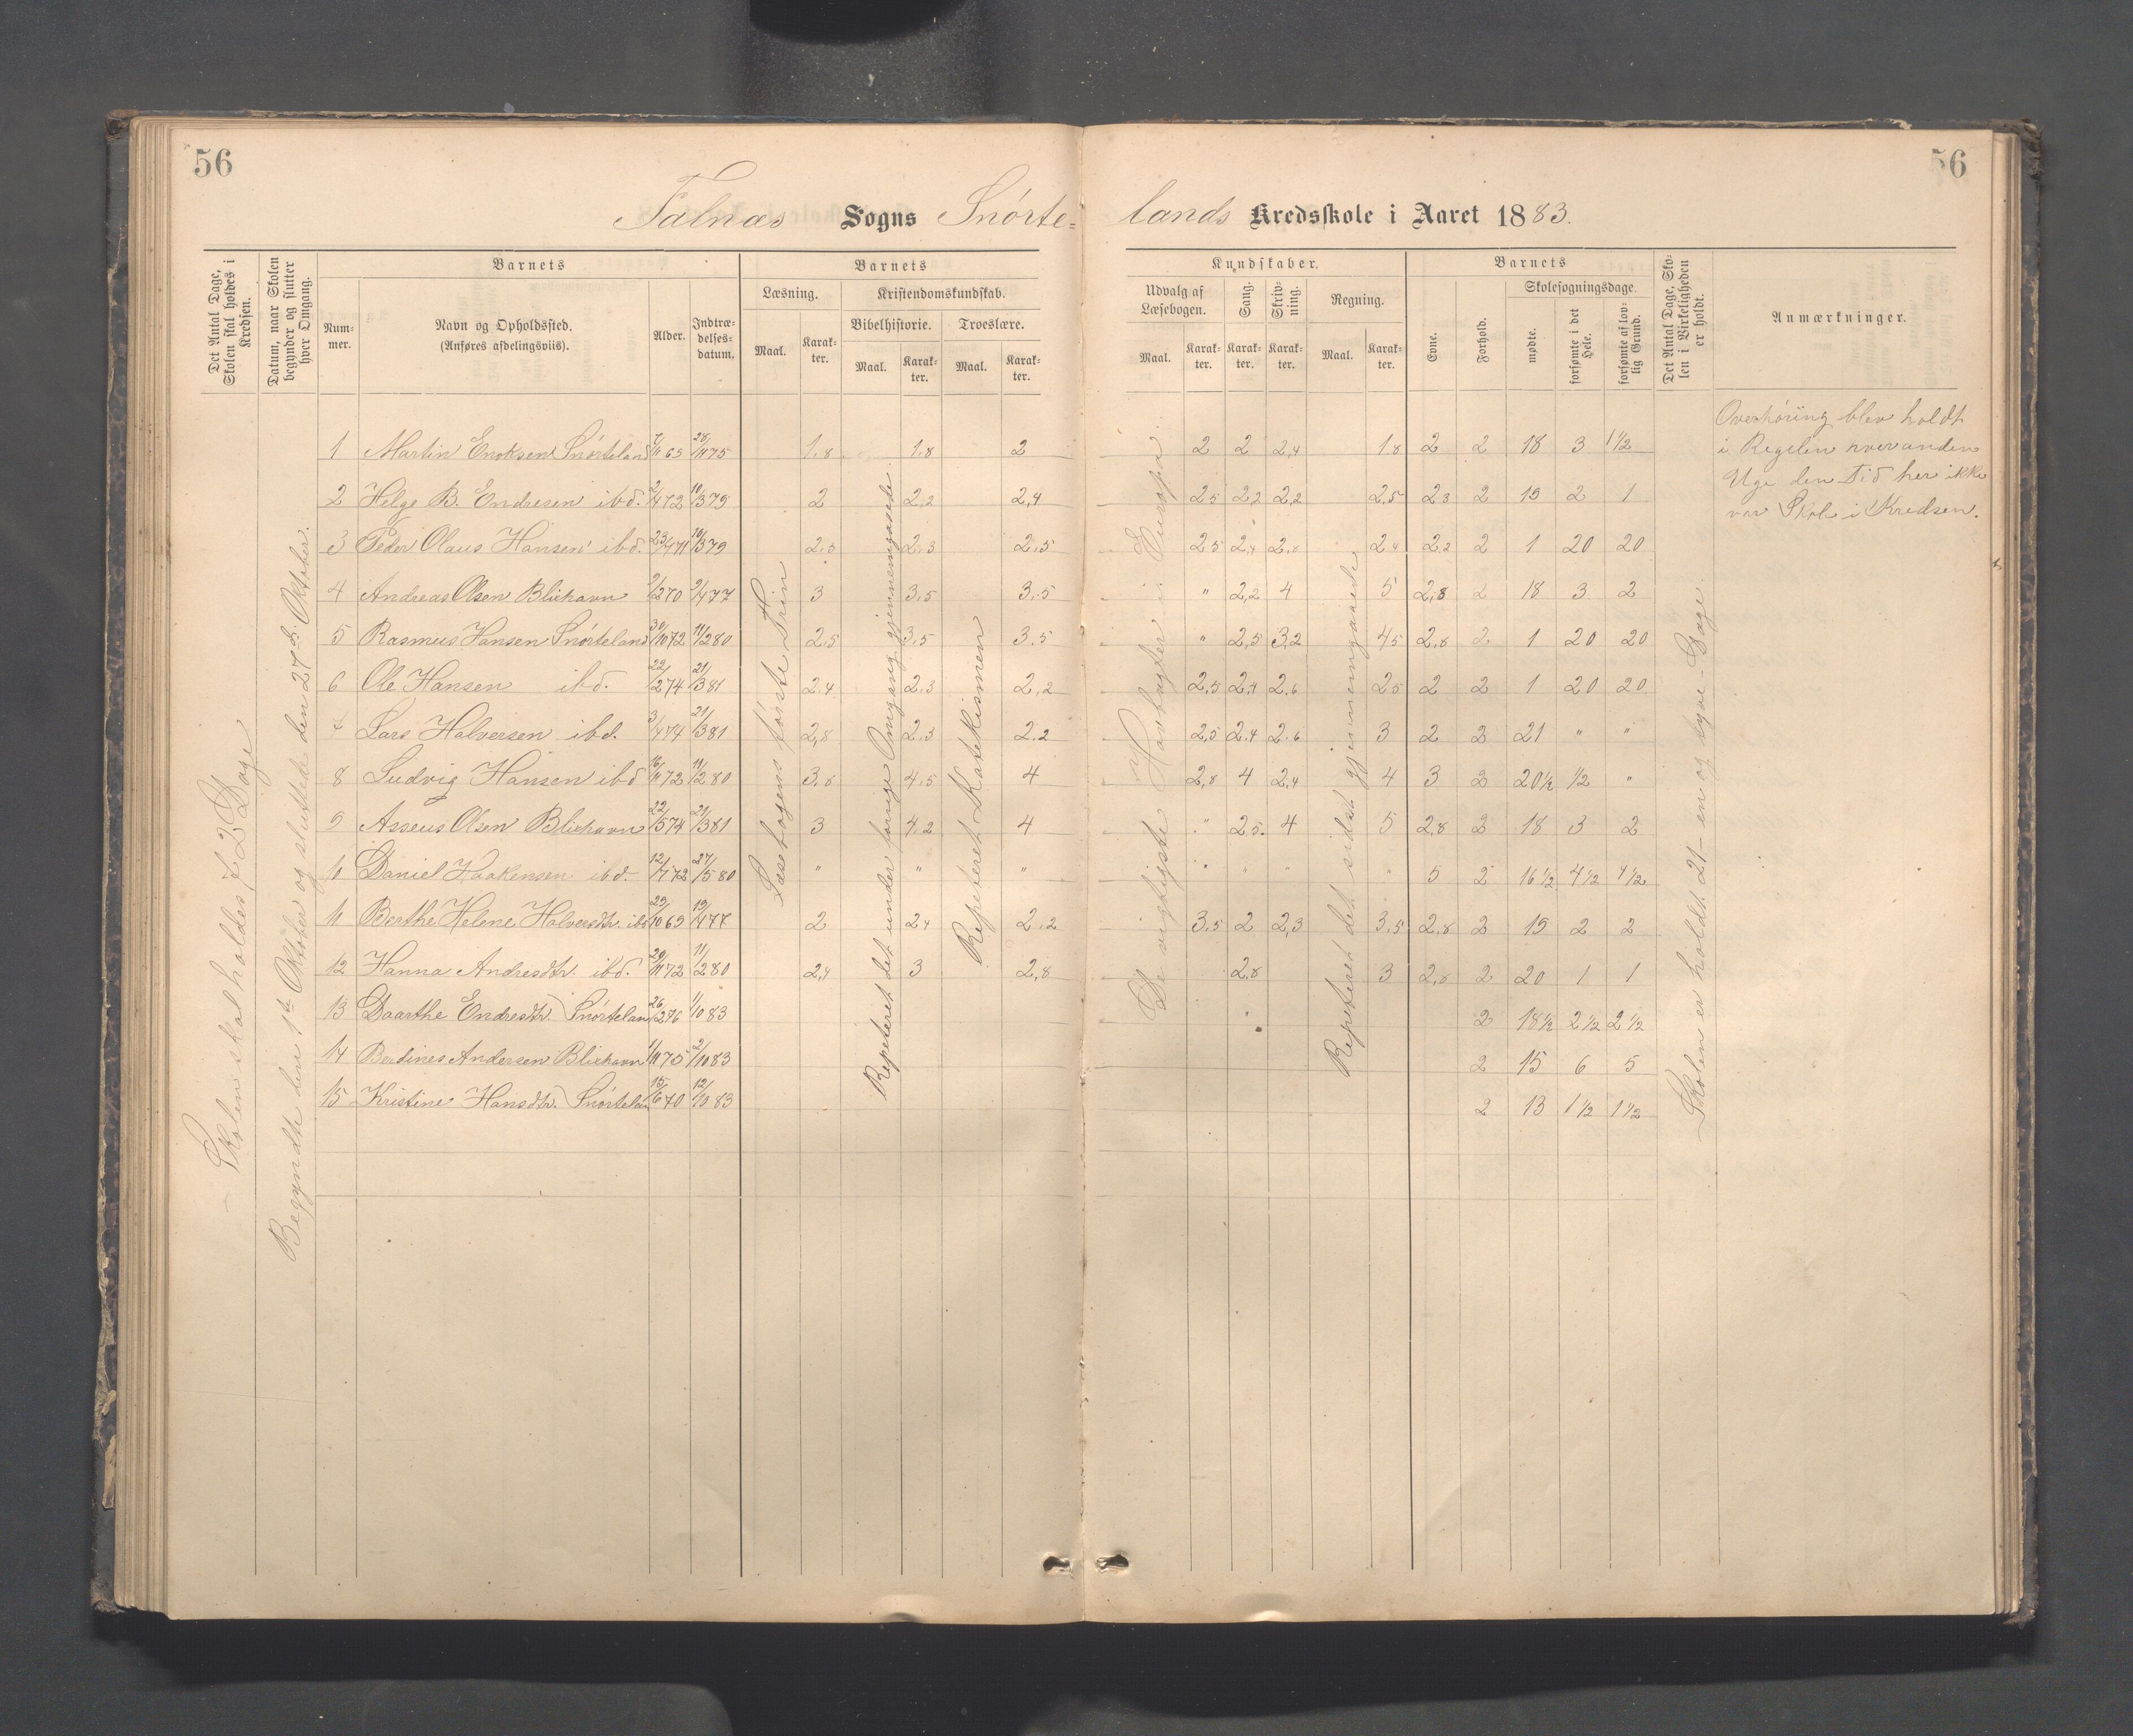 56
56
Falnæs Sogns Snórte=
lands Kredsskole i Aaret 1883.
Det Antal Dage, Skolen skal holdes i Kredsen.
Datum, naar Skolen begynder og slutter hver Omgang.
Barnets
Num-mer.
Navn og Opholdssted.
(Anføres afdelingsviis).
Alder.
Indtræ-delses-datum.
Barnets
Læsning.
Maal.
Karak-ter.
Kristendomskundskab.
Bibelhistorie.
Maal.
Karak-ter.
Troeslære.
Maal.
Karak-ter.
Kundskaber.
Udvalg af Læsebogen.
Maal.
Karak-ter.
Sang.
Karak-ter.
Skriv-ning.
Karak-ter.
Regning.
Maal.
Karak-ter.
Barnets
Evne.
Forhold.
Skolesøgningsdage.
mødte.
forsømte i det Hele.
forsømte af lov-lig Grund.
Det Antal Dage, Sko-len i Virkeligheden er holdt.
Anmærkninger.
Skolen skal holdes 72 Dage
Begyndte den 1ste Oktober og sluttede den 27de Oktober.
Læsebogens første Trin
Repeteret det under forrige Omgang gjennemgaaede
Repeteret Katekismen
De vigtigste Havbugter i Europa
Repeteret det sidst gjennemgaaede
Skolen er holdt 21 - en og tyve - Dage
Overhóring blev holdt
i Regelen hver anden
Uge den Tid her ikke
var Skole i Kredsen.
1 Martin Enoksen Snórteland 7/11 69 28/11 75 1.8 1.8 2 2 2 2,4 1.8 2 2 18 3 1 1/2
2 Helge B. Endresen ibd. 2/4 72 10/3 79 2 2,2 2,4 2.5 2.2 2,2 2,5 2.3 2 19 2 1
3 Peder Olaus Hansen ibd. 23/4 71 10/3 79 2.3 2.3 2.5 2.5 2,4 2.4 2.2 2 1 20 20
4 Andreas Olsen Blixhavn 2/2 70 2/4 77 3 3.5 3.5 " 2,2 4 5 2,8 2 18 3 2
5 Rasmus Hansen Snórteland 30/10 72 11/2 80 2.5 3.5 3.5 " 2,5 3,2 4.5 2.8 2 1 20 20
6 Ole Hansen ibd. 22/2 74 21/3 81 2.4 2.3 2,2 2,5 2,4 2.6 2.5 2 2 1 20 20
7 Lars Halversen ibd. 3/4 74 21/3 81 2,8 2.3 2.2 2,5 2.4 2.6 3 2 2 21 " "
8 Ludvig Hansen ibd 16/11 72 11/2 80 3.8 4.5 4 2,8 4 2,4 4 3 2 20 1/2 1/2 "
9 Asseus Olsen Blixhavn 22/5 74 21/3 81 3 4.2 4 " 2,5 4 5 2,8 2 18 3 2
10 Daniel Haakensen ibd. 12/7 72 27/5 80 " " " " " " " 5 2 16 1/2 4 1/2 4 1/2
11 Berthe Helene Halversdtr. ibd 29/10 69 19/4 77 2 2.4 2.2 3.5 2 2,3 3.5 2.8 2 19 2 2
12 Hanna Andresdtr. ibd. 29/11 72 11/2 80 2,4 3 2,8 2,8 3 2,8 2 20 1 1
13 Daarthe Endresdtr. Snórteland 26/2 76 1/10 83 2 18 1/2 2 1/2 2 1/2
14 Berdines Andersen Blixhavn 1/11 75 2/10 83 2 15 6 5
15 Kristine Hansdtr. Snórteland 15/6 70 12/10 83 2 13 1 1/2 1 1/2